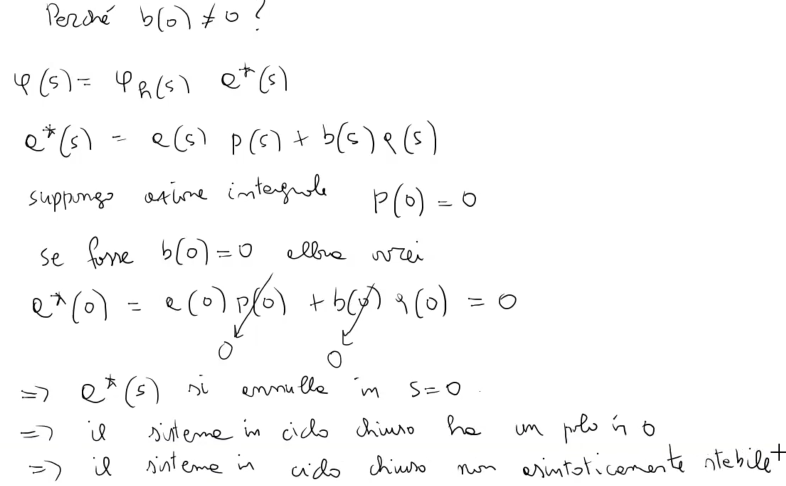 Perché b(0) ≠ 0 ?
φ(s) = φₕ(s) a*(s)
a*(s) = a(s) p(s) + b(s) q(s)
suppongo azione integrale p(0) = 0
se fosse b(0) = 0 allora avrei
a*(0) = a(0) p(0) + b(0) q(0) = 0
0 0
=> a*(s) si annulla in s=0
=> il sistema in ciclo chiuso ha un polo in 0
=> il sistema in ciclo chiuso non asintoticamente stabile